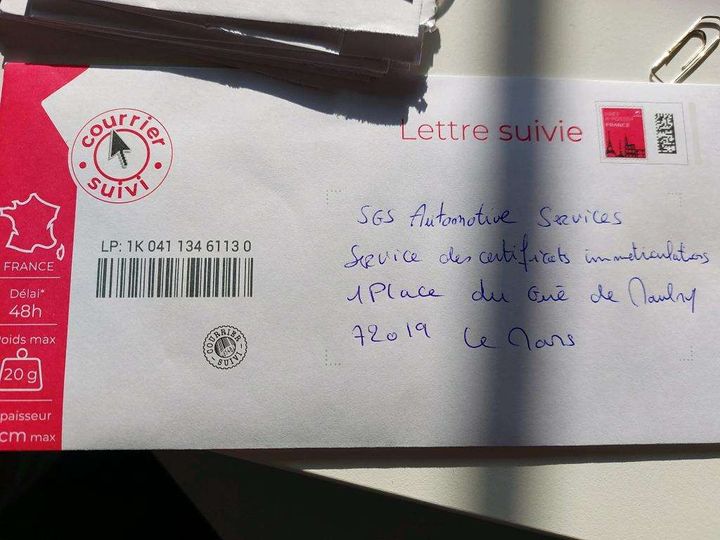 courrier
suivi
Lettre suivie
FRANCE
SGS Automotive Services
Service des certificats immatriculations
1 Place du Gué de Maulny
72019 Le Mans
LP: 1K 041 134 6113 0
COURRIER
SUIVI
FRANCE
Délai*
48h
Poids max
20 g
paisseur
cm max